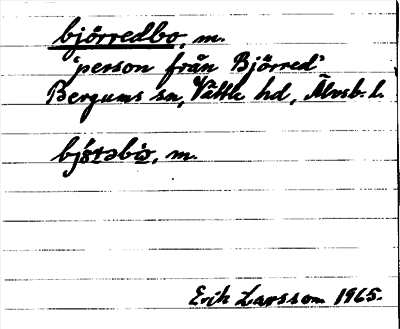 björredbo, m.
'person från Björred'
Bergums sn, Vättle hd, Älvsb. l.
m.
Erik Larsson 1965.